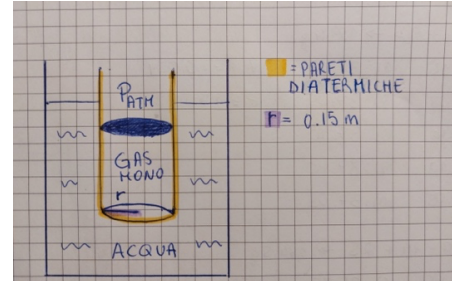 PATM
GAS
MONO
r
ACQUA
= PARETI
DIATERMICHE
r = 0.15 m